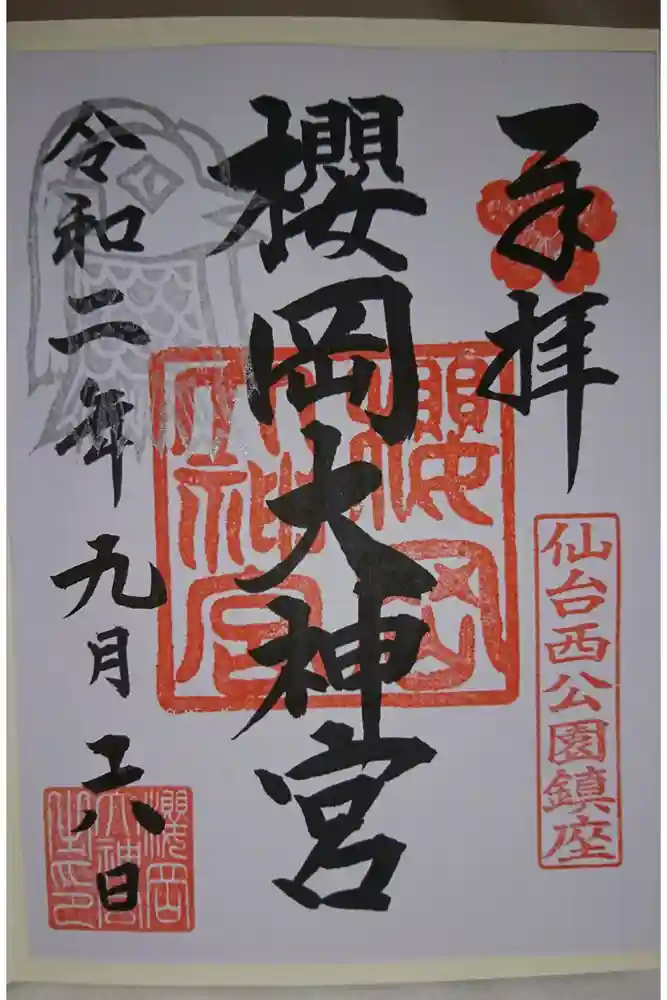 奉拝
仙台西公園鎮座
櫻岡大神宮
櫻岡
大神宮
令和二年九月六日
櫻岡
大神宮